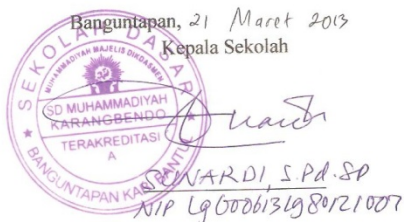 Banguntapan, 21 Maret 2013
Kepala Sekolah
SEKOLAH DASAR
MUHAMMADIYAH MAJELIS DIKDASMEN
SD MUHAMMADIYAH
KARANGBENDO
TERAKREDITASI
A
BANGUNTAPAN KAB
SUWARDI, S.Pd.SD
NIP 196006131980121007